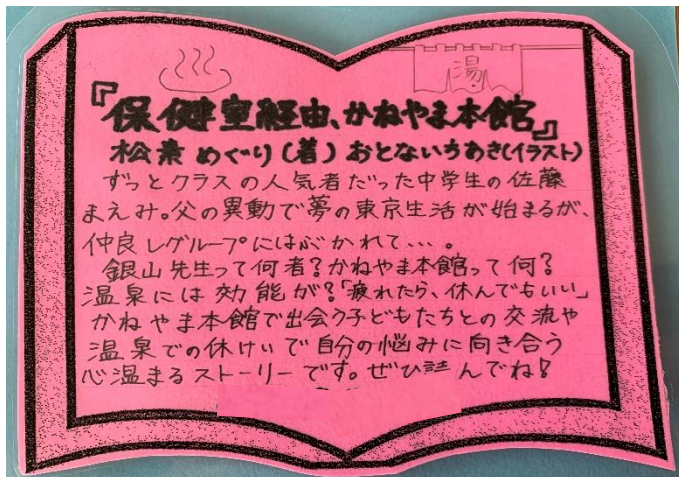 湯
『保健室経由、かねやま本館』
松素 めぐり(著) おとないちあき(イラスト)
ずっとクラスの人気者だった中学生の佐藤
まえみ。父の異動で夢の東京生活が始まるが、
仲良しグループにはぶかれて…。
銀山先生って何者?かねやま本館って何?
温泉には効能が?「疲れたら、休んでもいい」
かねやま本館で出会う子どもたちとの交流や
温泉での休けいで自分の悩みに向き合う
心温まるストーリーです。ぜひ読んでね!